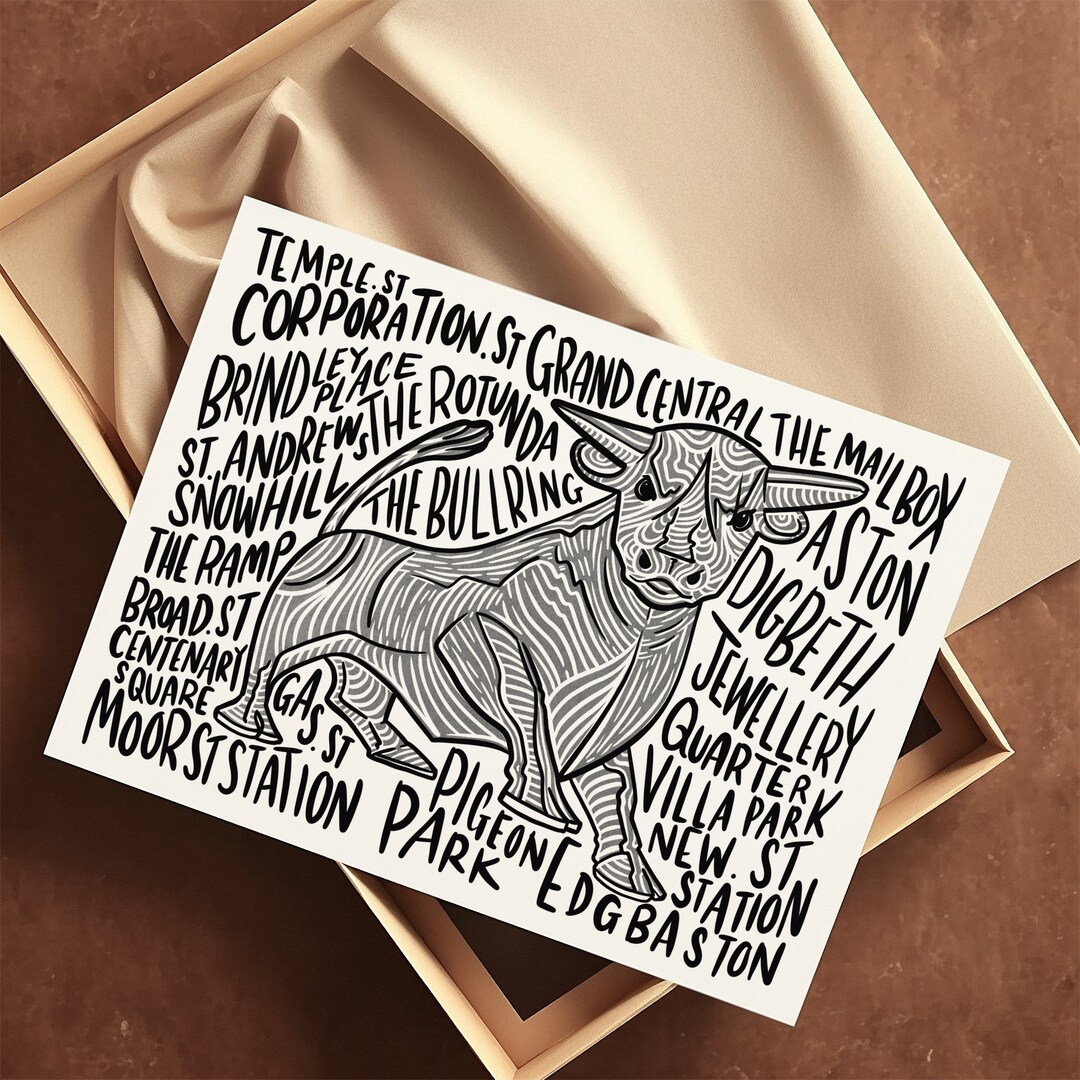 TEMPLE.ST
CORPORATION.ST
GRAND CENTRAL
THE MAILBOX
BRINDLEY
PLACE
THE ROTUNDA
ST.ANDREWS
THE BULLRING
SNOWHILL
THE RAMP
BROAD.ST
CENTENARY
SQUARE
GAS.ST
MOOR ST STATION
ASTON
DIGBETH
JEWELLERY
QUARTER
VILLA PARK
NEW.ST
STATION
PIGEON
PARK
EDGBASTON